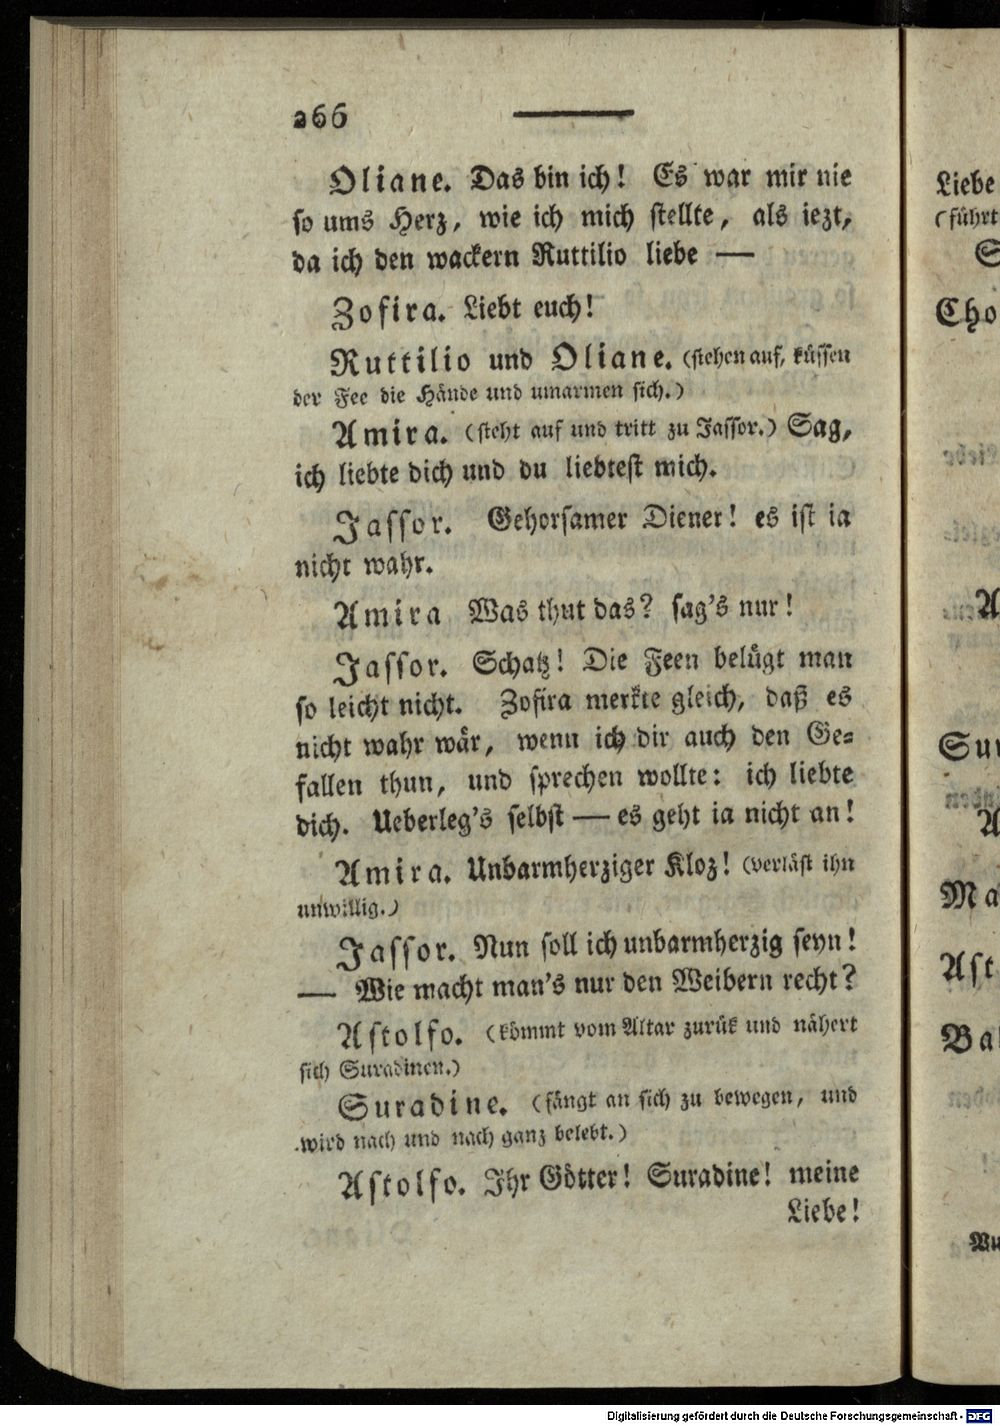 266
Oliane. Das bin ich! Es war mir nie
so ums Herz, wie ich mich stellte, als iezt,
da ich den wackern Ruttilio liebe —
Zofira. Liebt euch!
Ruttilio und Oliane. (stehen auf, küssen
der Fee die Hände und umarmen sich.)
Amira. (steht auf und tritt zu Jassor.) Sag,
ich liebte dich und du liebtest mich.
Jassor. Gehorsamer Diener! es ist ia
nicht wahr.
Amira Was thut das? sag's nur!
Jassor. Schatz! Die Feen belügt man
so leicht nicht. Zofira merkte gleich, daß es
nicht wahr wär, wenn ich dir auch den Ge-
fallen thun, und sprechen wollte: ich liebte
dich. Ueberleg's selbst — es geht ia nicht an!
Amira. Unbarmherziger Kloz! (verläst ihn
unwillig.)
Jassor. Nun soll ich unbarmherzig seyn!
— Wie macht man's nur den Weibern recht?
Astolfo. (kömmt vom Altar zurük und nähert
sich Suradinen.)
Suradine. (fängt an sich zu bewegen, und
wird nach und nach ganz belebt.)
Astolfo. Ihr Götter! Suradine! meine
Liebe!
Liebe
(führt
S
Cho
A
Sur
A
Ma
Ast
Ba
Digitalisierung gefördert durch die Deutsche Forschungsgemeinschaft - DFG